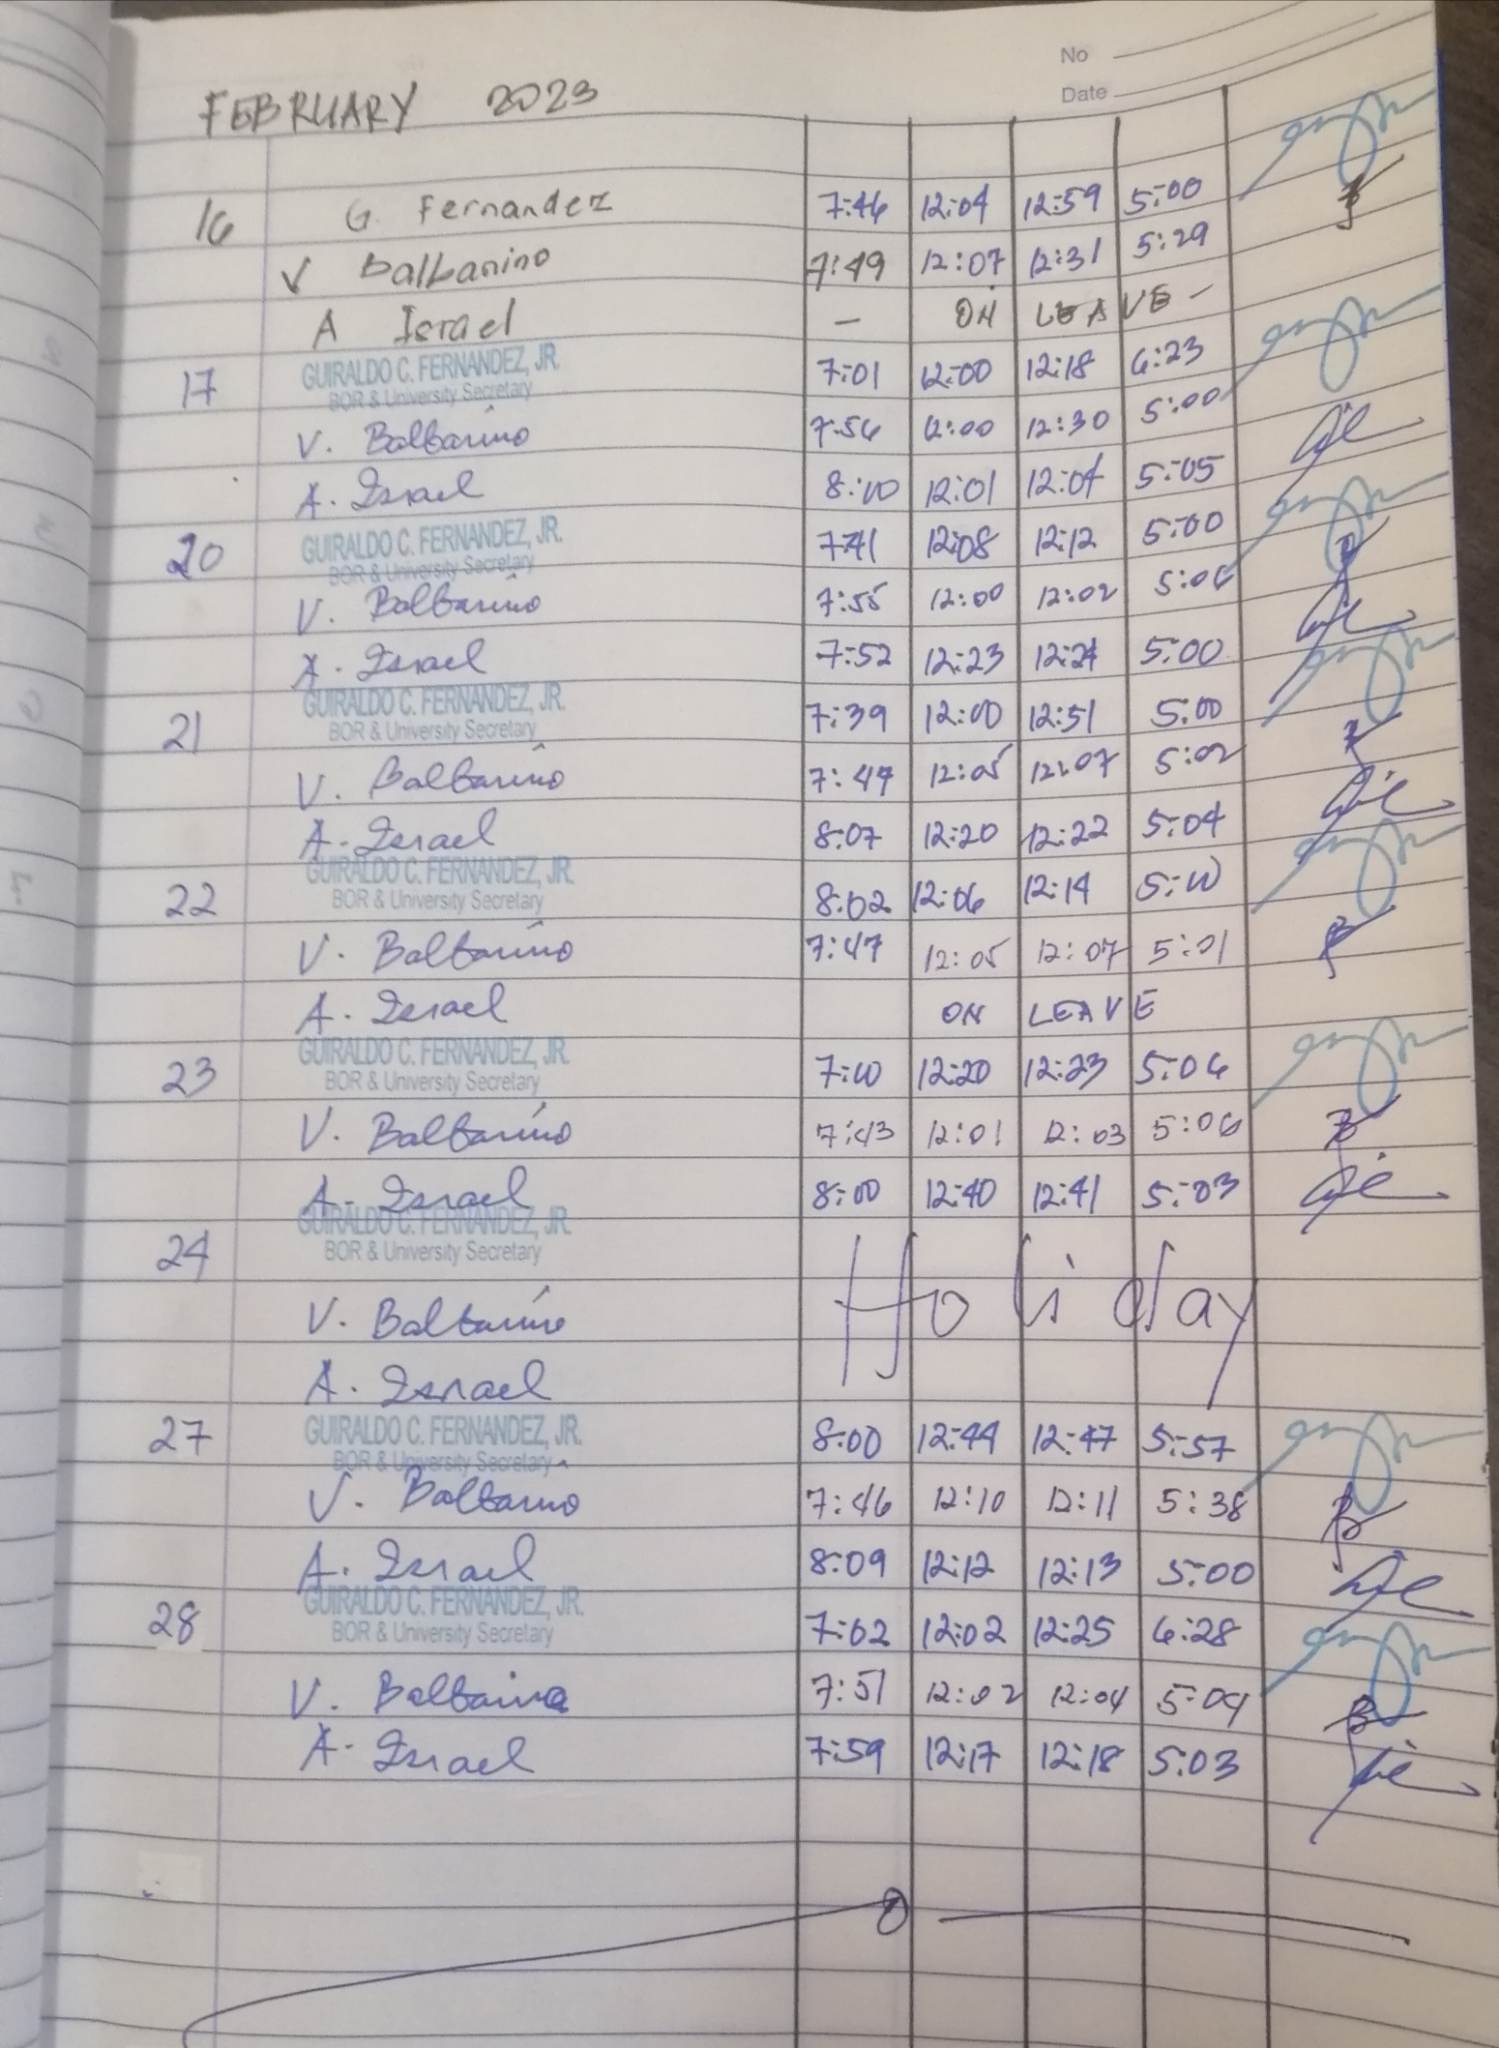 No
Date
FEBRUARY 2023
16 G. Fernandez 7:46 12:04 12:59 5:00
V Balbarino 7:49 12:07 12:31 5:29
A Israel — ON LEAVE —
17 GUIRALDO C. FERNANDEZ, JR. 7:01 12:00 12:18 6:23
BOR & University Secretary
V. Balbarino 7:56 12:00 12:30 5:00
A. Israel 8:00 12:01 12:04 5:05
20 GUIRALDO C. FERNANDEZ, JR. 7:41 12:08 12:12 5:00
BOR & University Secretary
V. Balbarino 7:55 12:00 12:02 5:06
A. Israel 7:52 12:23 12:24 5:00
21 GUIRALDO C. FERNANDEZ, JR. 7:39 12:00 12:51 5:00
BOR & University Secretary
V. Balbarino 7:47 12:05 12:07 5:02
A. Israel 8:07 12:20 12:22 5:04
22 GUIRALDO C. FERNANDEZ, JR. 8:02 12:06 12:14 5:00
BOR & University Secretary
V. Balbarino 7:47 12:05 12:07 5:01
A. Israel ON LEAVE
23 GUIRALDO C. FERNANDEZ, JR. 7:00 12:20 12:23 5:06
BOR & University Secretary
V. Balbarino 7:43 12:01 12:03 5:06
A. Israel 8:00 12:40 12:41 5:03
24 GUIRALDO C. FERNANDEZ, JR.
BOR & University Secretary
V. Balbarino Holiday
A. Israel
27 GUIRALDO C. FERNANDEZ, JR. 8:00 12:44 12:47 5:57
BOR & University Secretary
V. Balbarino 7:46 12:10 12:11 5:38
A. Israel 8:09 12:12 12:13 5:00
28 GUIRALDO C. FERNANDEZ, JR. 7:02 12:02 12:25 6:28
BOR & University Secretary
V. Balbarino 7:51 12:02 12:04 5:04
A. Israel 7:59 12:17 12:18 5:03